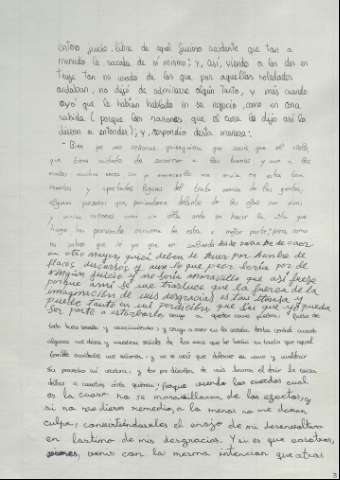 entrio quedó libre de aquel furioso acidente que tan a
menudo le sacaba de sí mismo; y, así, viendo a los dos en
traje tan no usado de los que por aquellas soledades
andaban, no dejó de admirarse algún tanto, y más cuando
oyó que le habían hablado en su negocio, como en cosa
sabida (porque las razones que el cura le dijo así lo
dieron a entender); y, respondio desta manera:
- Bien veo yo señores quienquiera que seáis que el cielo,
que tiene cuidado de socorrer a los buenos y aun a los
malos muchas veces sin yo merecello me envia en estos tan
remotos y apartados lugares del trato común de las gentes,
algunas personas que poniéndome delante de los ojos con vivas
y varias razones cuan sin ella ando en hacer la vida que
hago, han procurado sacarme de esta a mejor parte; pero como
no saben que sé yo que en saliendo deste daño he de caer
en otro mayor, quizá deben de tener por hombre de
flacos discursos y aun lo que peor sería por de
ningún juicio y no sería maravilla que así fuese
porque a mí se me trasluce que la fuerza de la
imaginación de mis desgracias es tan intensa y
puede tanto en mi perdición que sin que yo pueda
ser parte a estorbarlo vengo a quedar como piedra falto de
todo buen sentido y conocimiento; y vengo a caer en la cuenta desta verdad cuando
algunos me dicen y muestran señales de las cosas que he hecho en tanto que aquel
terrible accidente me señorea, y no sé más que dolerme en vano y maldecir
sin provecho mi ventura, y dar por disculpa de mis locuras el decir la causa
dellas a cuantos oirla quieren; porque viendo los cuerdos cual
es la causa no se maravillaran de los efectos, y
si no me dieren remedio, a lo menos no me daran
culpa, convirtiéndoseles el enojo de mi desenvoltura
en lastima de mis desgracias. Y si es que vosotros,
señores, venis con la mesma intencion que otros